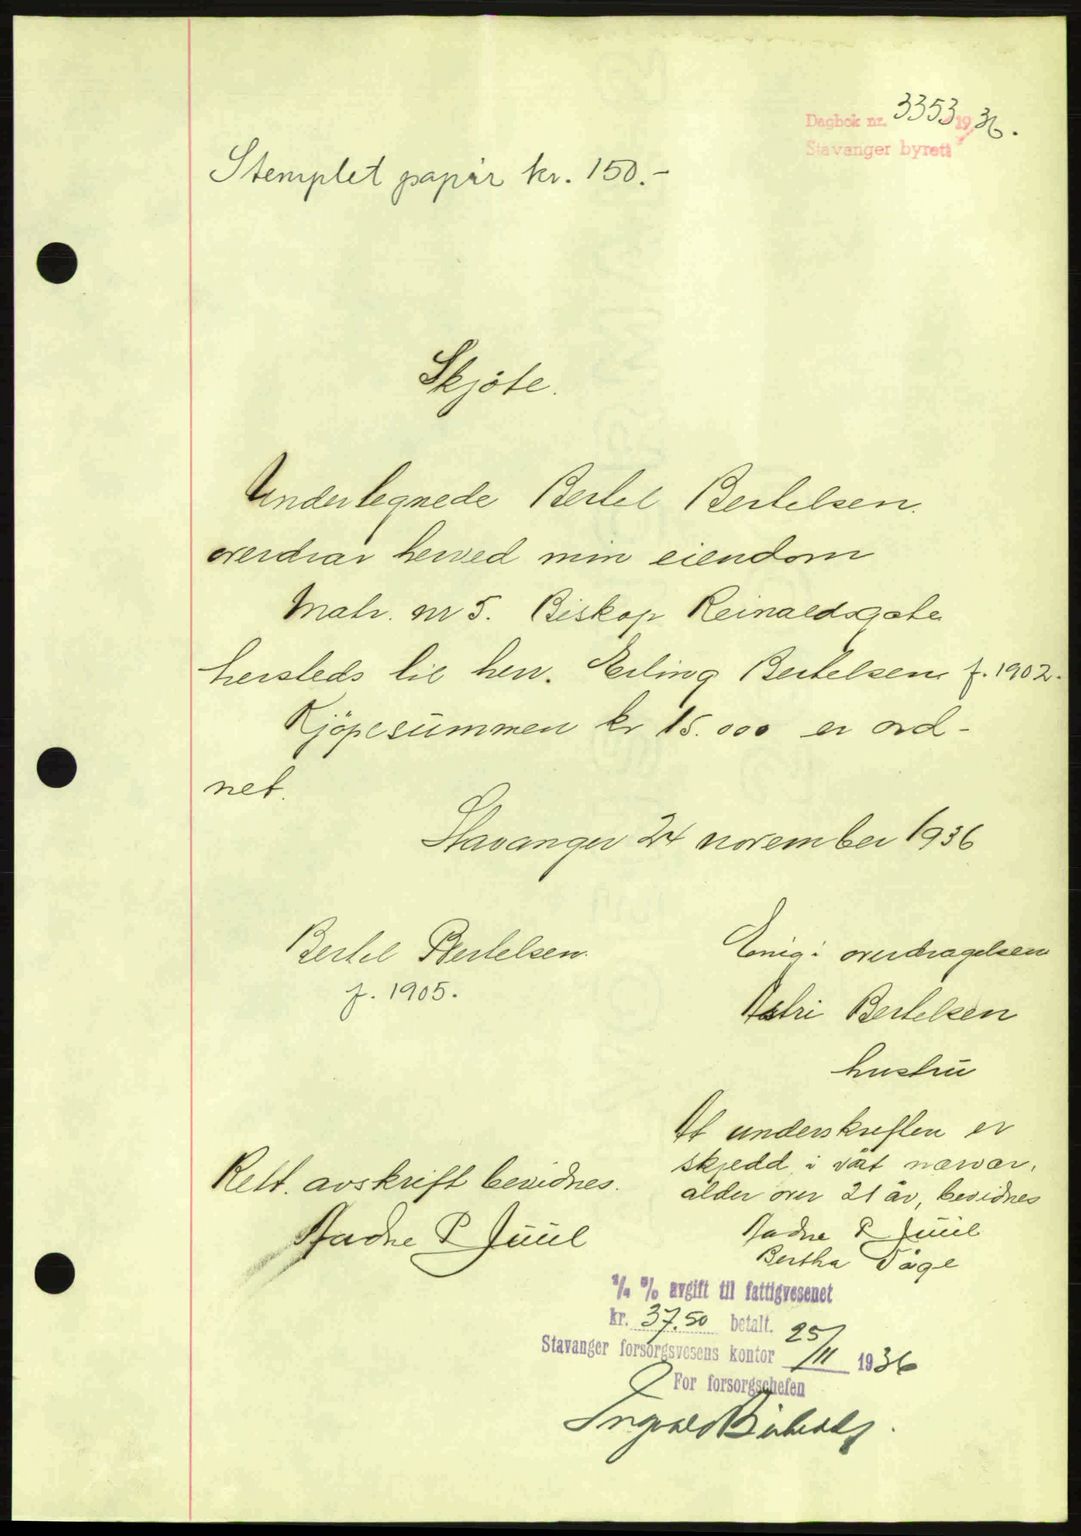 Dagbok nr. 3353 1936.
Stavanger byrett
Stemplet papir kr. 150.-
Skjöte.
Undertegnede Bertel Bertelsen.
overdrar herved min eiendom
Matr. nr 5. Biskop Reinaldsgate
hersteds til herr. Erling Bertelsen f. 1902.
Kjöpesummen kr 15.000 er ord-
net.
Stavanger 24 november 1936
Bertel Bertelsen.
f. 1905.
Enig i overdragelsen
Astri Bertelsen
hustru
At underskriften er
skjedd i vårt nærvær,
alder over 21 år, bevidnes
Aadne P Juul
Bertha Våge
Rett. avskrift bevidnes.
Aadne P Juul
1/4 % avgift til fattigvesenet
kr. 37.50 betalt.
Stavanger forsorgsvesens kontor 25/11 1936
For forsorgschefen
Ingvald